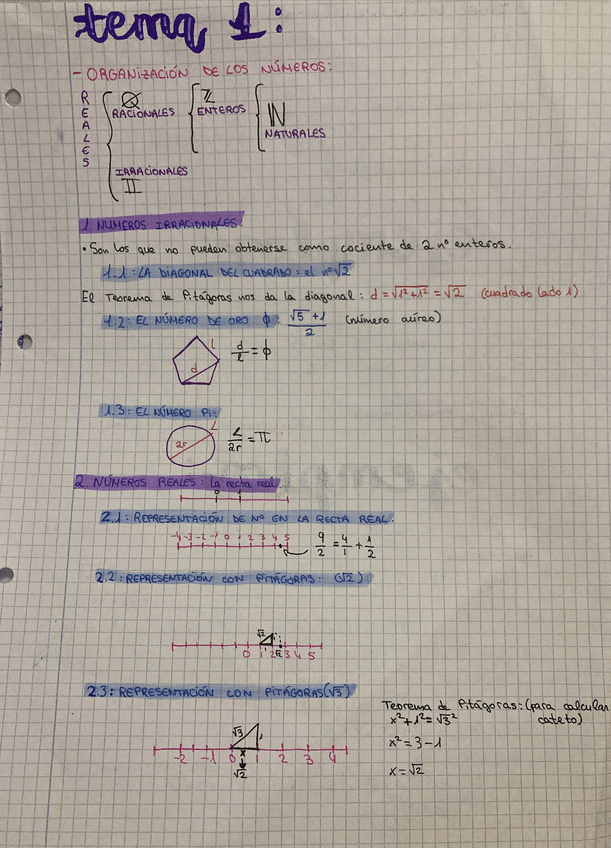 tema 1:
- ORGANIZACIÓN DE LOS NÚMEROS:
REALES
Q
RACIONALES
Z
ENTEROS
N
NATURALES
IRRACIONALES
II
1 NUMEROS IRRACIONALES:
• Son los que no pueden obtenerse como cociente de 2 nº enteros.
1.1: LA DIAGONAL DEL CUADRADO: el nº √2
El Teorema de Pitágoras nos da la diagonal: d = √1²+1² = √2 (cuadrado lado 1)
1.2: EL NÚMERO DE ORO ϕ: √5 +1 / 2 (número aúreo)
l
d
d/l = ϕ
1.3: EL NÚMERO PI:
L
2r
L/2r = π
2. NÚMEROS REALES: la recta real
0 1
2.1: REPRESENTACIÓN DE Nº EN LA RECTA REAL:
-4 -3 -2 -1 0 1 2 3 4 5
9/2 = 4/1 + 1/2
2.2: REPRESENTACIÓN CON PITÁGORAS: (√2)
√2 1
0 1 2 √2 3 4 5
2.3: REPRESENTACIÓN CON PITÁGORAS (√3)
√3 1
-2 -1 0 x 1 2 3 4
√2
Teorema de Pitágoras: (para calcular cateto)
x² + 1² = √3²
x² = 3 - 1
x = √2